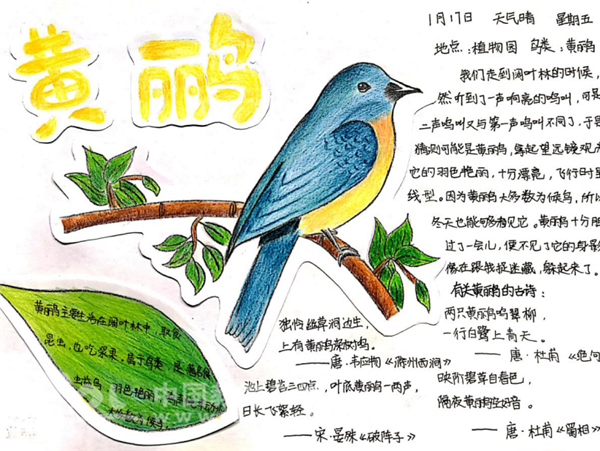 黄鹂
1月17日 天气晴 星期五
地点:植物园 鸟类:黄鹂
我们走到阔叶林的时候,
然听到了一声响亮的鸣叫,可是
二声鸣叫又与第一声鸣叫不同了,于是
猜测可能是黄鹂鸟,拿起望远镜观
它的羽色艳丽,十分漂亮,飞行时呈
线型。因为黄鹂大多数为候鸟,所以
冬天也能够看见它。黄鹂鸟十分胆
过了一会儿,便不见了它的身影
像在跟我捉迷藏,躲起来了。
有关黄鹂的古诗:
两只黄鹂鸣翠柳,
一行白鹭上青天。
——唐·杜甫《绝句
映阶碧草自春色,
隔夜黄鹂空好音。
——唐·杜甫《蜀相》
独怜幽草涧边生,
上有黄鹂深树鸣。
——唐·韦应物《滁州西涧》
池上碧苔三四点,叶底黄鹂一两声,
日长飞絮轻。
——宋·晏殊《破阵子》
黄鹂主要生活在阔叶林中,取食
昆虫,也吃浆果,属于鸟类,
羽色艳丽
中国